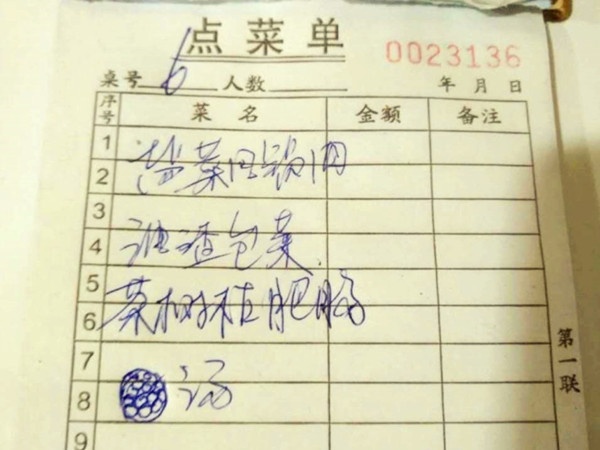 点菜单
0023136
桌号 6 人数 年 月 日
序号 菜名 金额 备注
1
盐菜回锅肉
2
3
油渣包菜
4
5
菜树桩肥肠
6
7
汤
8
9
第一联